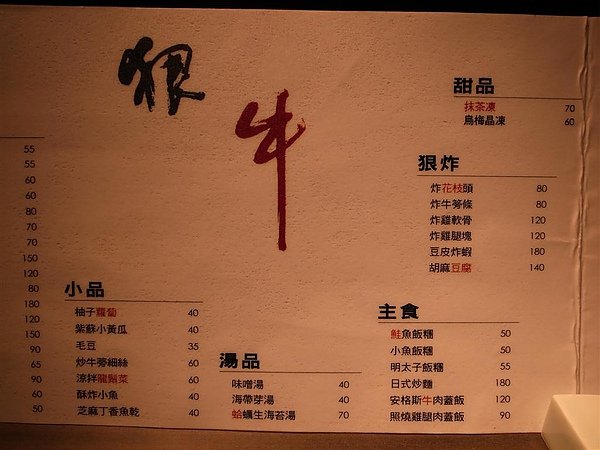 狠牛
55
55
60
60
80
70
70
150
120
80
180
120
150
90
65
90
60
50
小品
柚子蘿蔔 40
紫蘇小黃瓜 40
毛豆 35
炒牛蒡細絲 60
涼拌龍鬚菜 60
酥炸小魚 40
芝麻丁香魚乾 40
湯品
味噌湯 40
海帶芽湯 40
蛤蠣生海苔湯 70
甜品
抹茶凍 70
烏梅晶凍 60
狠炸
炸花枝頭 80
炸牛蒡條 80
炸雞軟骨 120
炸雞腿塊 120
豆皮炸蝦 180
胡麻豆腐 140
主食
鮭魚飯糰 50
小魚飯糰 50
明太子飯糰 55
日式炒麵 180
安格斯牛肉蓋飯 120
照燒雞腿肉蓋飯 90